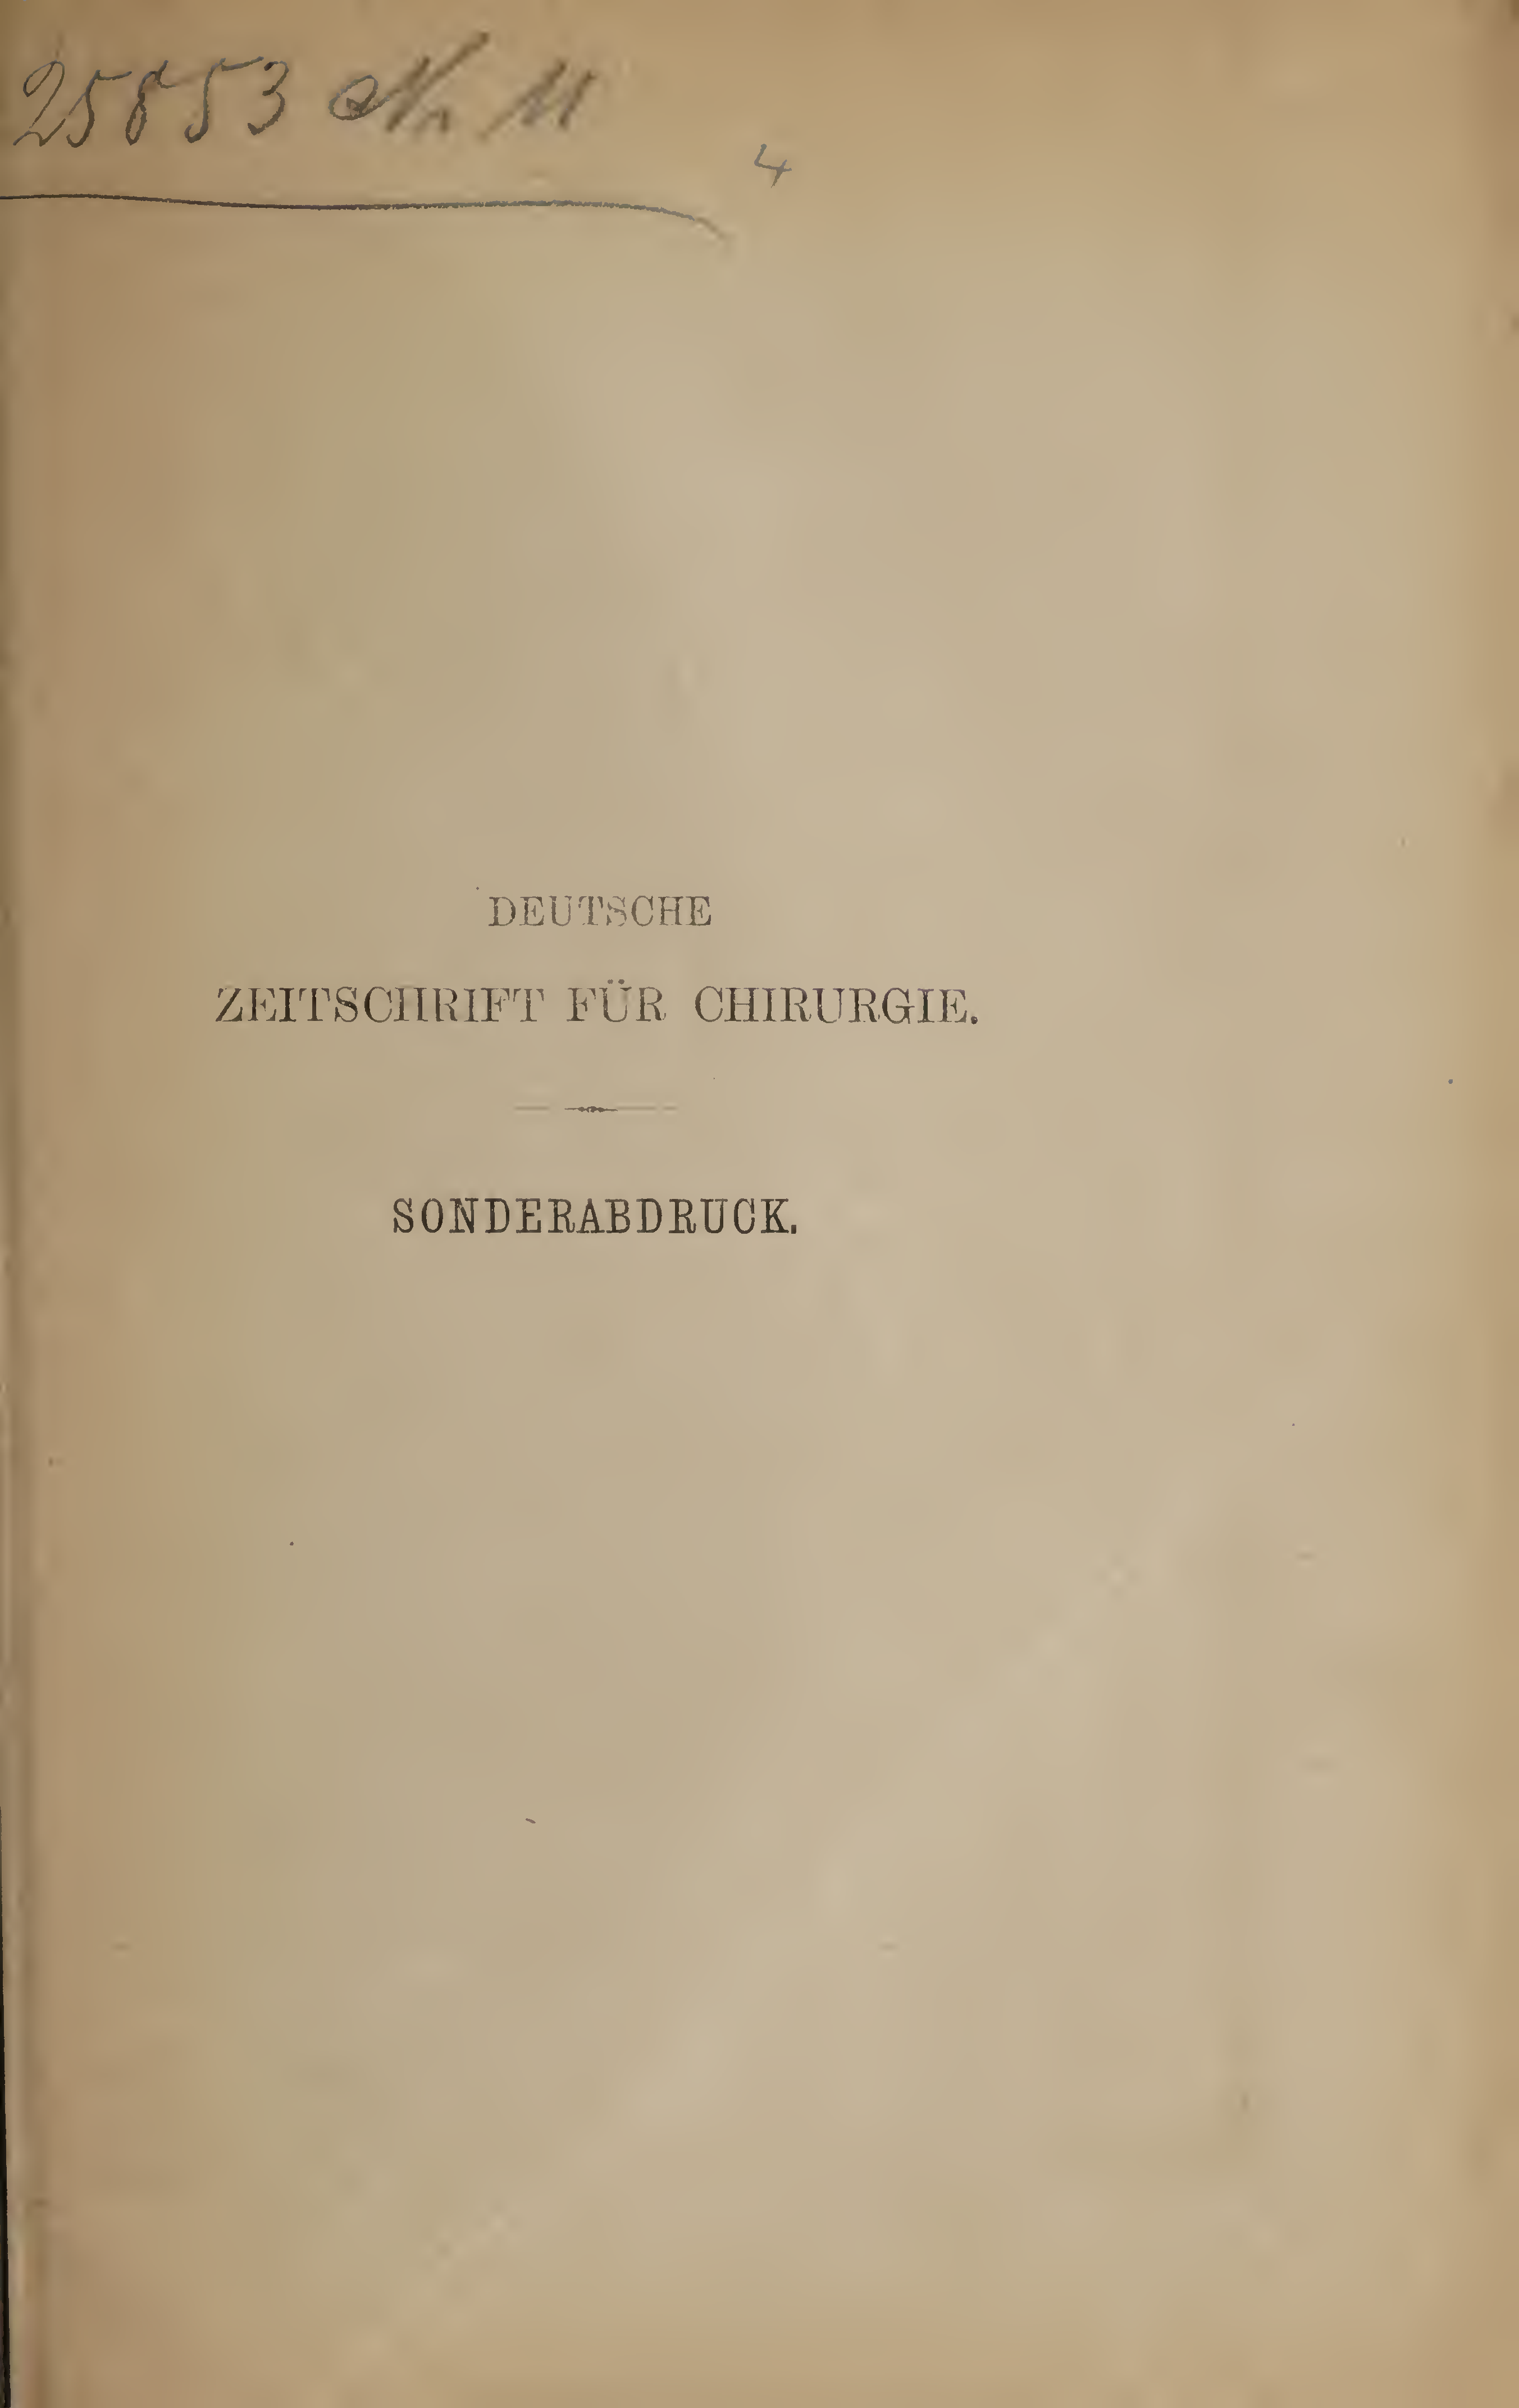 25853
4
DEUTSCHE
ZEITSCHRIFT FÜR CHIRURGIE.
SONDERABDRUCK.